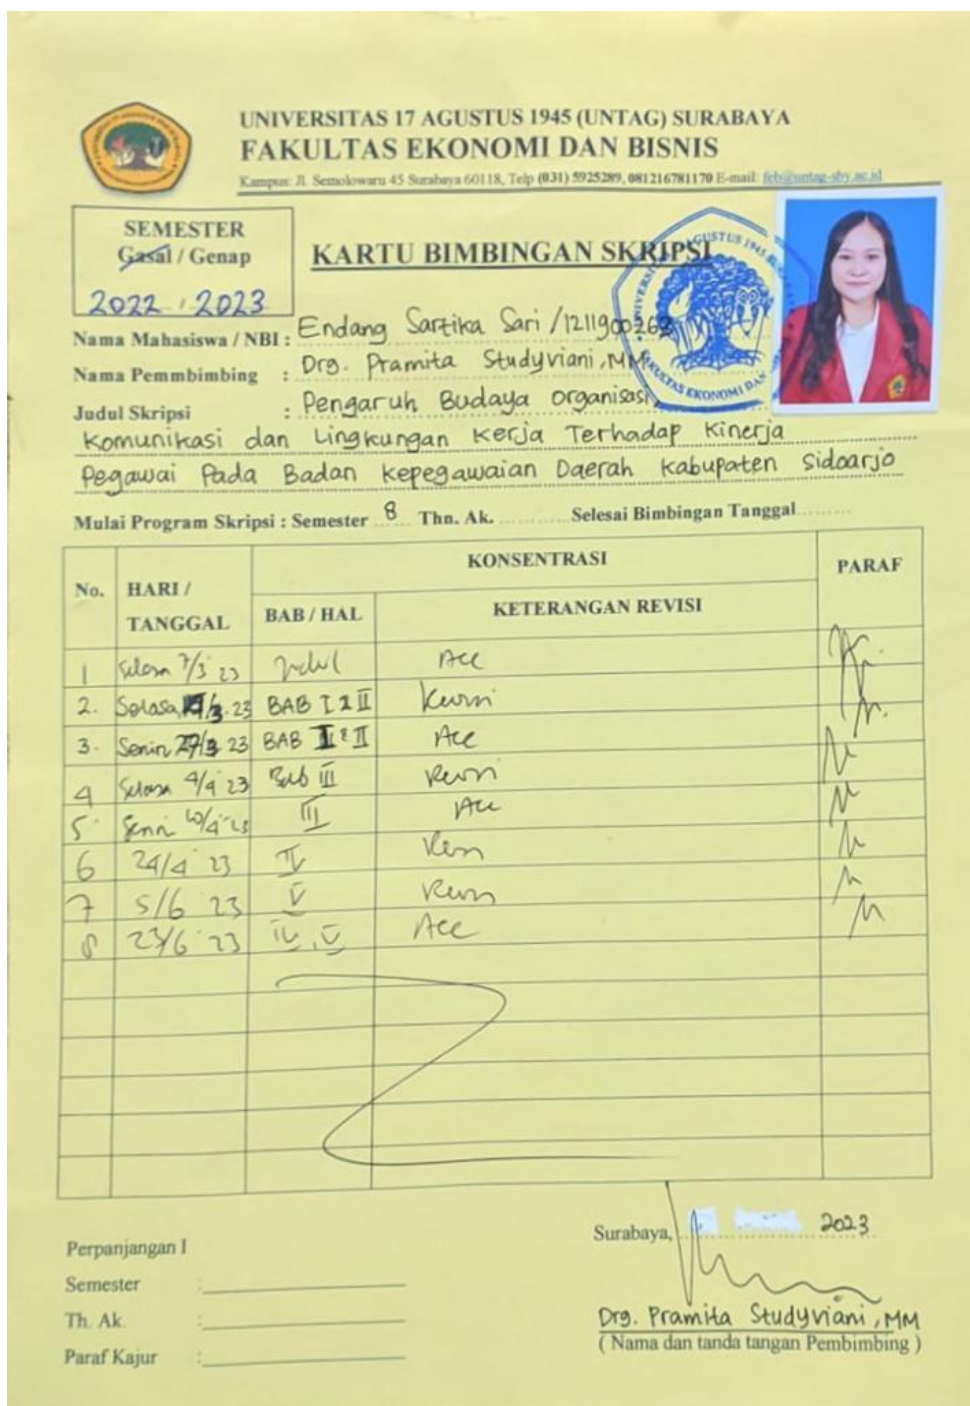 UNIVERSITAS 17 AGUSTUS 1945 (UNTAG) SURABAYA
FAKULTAS EKONOMI DAN BISNIS
Kampus: Jl. Semolowaru 45 Surabaya 60118, Telp (031) 5925289, 081216781170 E-mail: feb@untag-sby.ac.id
SEMESTER
Gasal / Genap
2022 - 2023
KARTU BIMBINGAN SKRIPSI
Nama Mahasiswa / NBI : Endang Sartika Sari / 1211900263
Nama Pemmbimbing : Drg. Pramita Studyviani, MM
Judul Skripsi : Pengaruh Budaya organisasi,
Komunikasi dan Lingkungan Kerja Terhadap Kinerja
Pegawai Pada Badan Kepegawaian Daerah Kabupaten Sidoarjo
Mulai Program Skripsi : Semester 8 Thn. Ak. Selesai Bimbingan Tanggal
No. HARI / TANGGAL KONSENTRASI PARAF
BAB / HAL KETERANGAN REVISI
1 Selasa 7/3 23 Judul Acc
2. Selasa /3 23 BAB I & II
3. Senin 27/3 23 BAB I & II Acc
4 Selasa 4/4 23 Bab III Revisi
5. Senin 10/4 23 III Acc
6 24/4 23 Revisi
7 5/6 23 V Revisi
8 23/6 23 IV, V Acc
Surabaya, 2023
Perpanjangan I
Semester :
Th. Ak. :
Paraf Kajur :
Drg. Pramita Studyviani, MM
( Nama dan tanda tangan Pembimbing )